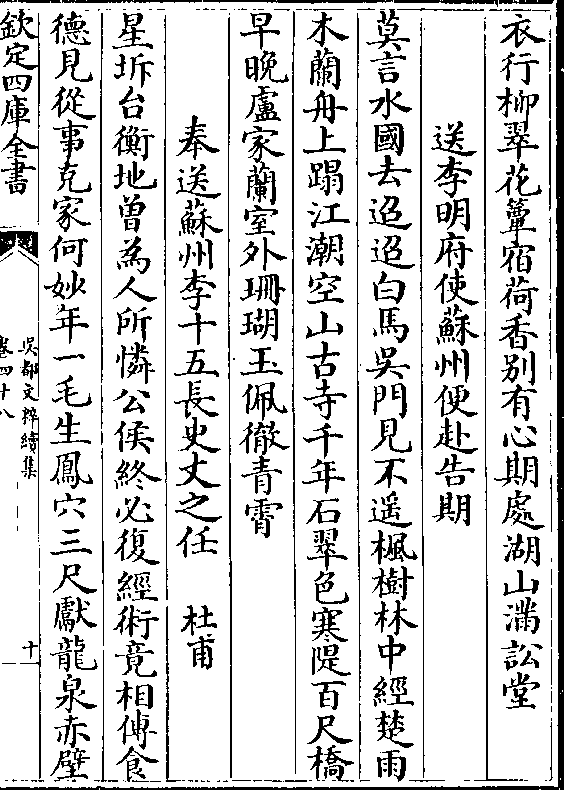 衣行柳翠花簟宿荷香别有心期處湖山滿訟堂
送李明府使蘇州便赴告期
莫言水國去迢迢白馬吳門見不遥楓樹林中經楚雨
木蘭舟上蹋江潮空山古寺千年石翠色寒隄百尺橋
早晚盧家蘭室外珊瑚玉佩徹青霄
奉送蘇州李十五長史丈之任　杜甫
星坼台衡地曾為人所憐公侯終必復經術竟相傳食
德見從事克家何妙年一毛生鳳穴三尺獻龍泉赤壁
欽定四庫全書
吳都文粹續集
卷四十八
十